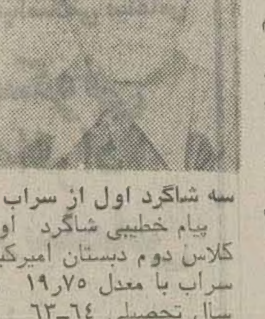 سه شاگرد اول از سراب
پیام خطیبی شاگرد او
کلاس دوم دبستان امیرکبی
سراب با معدل ۱۹٫۷۵
سال تحصیلی ۶۴-۶۳